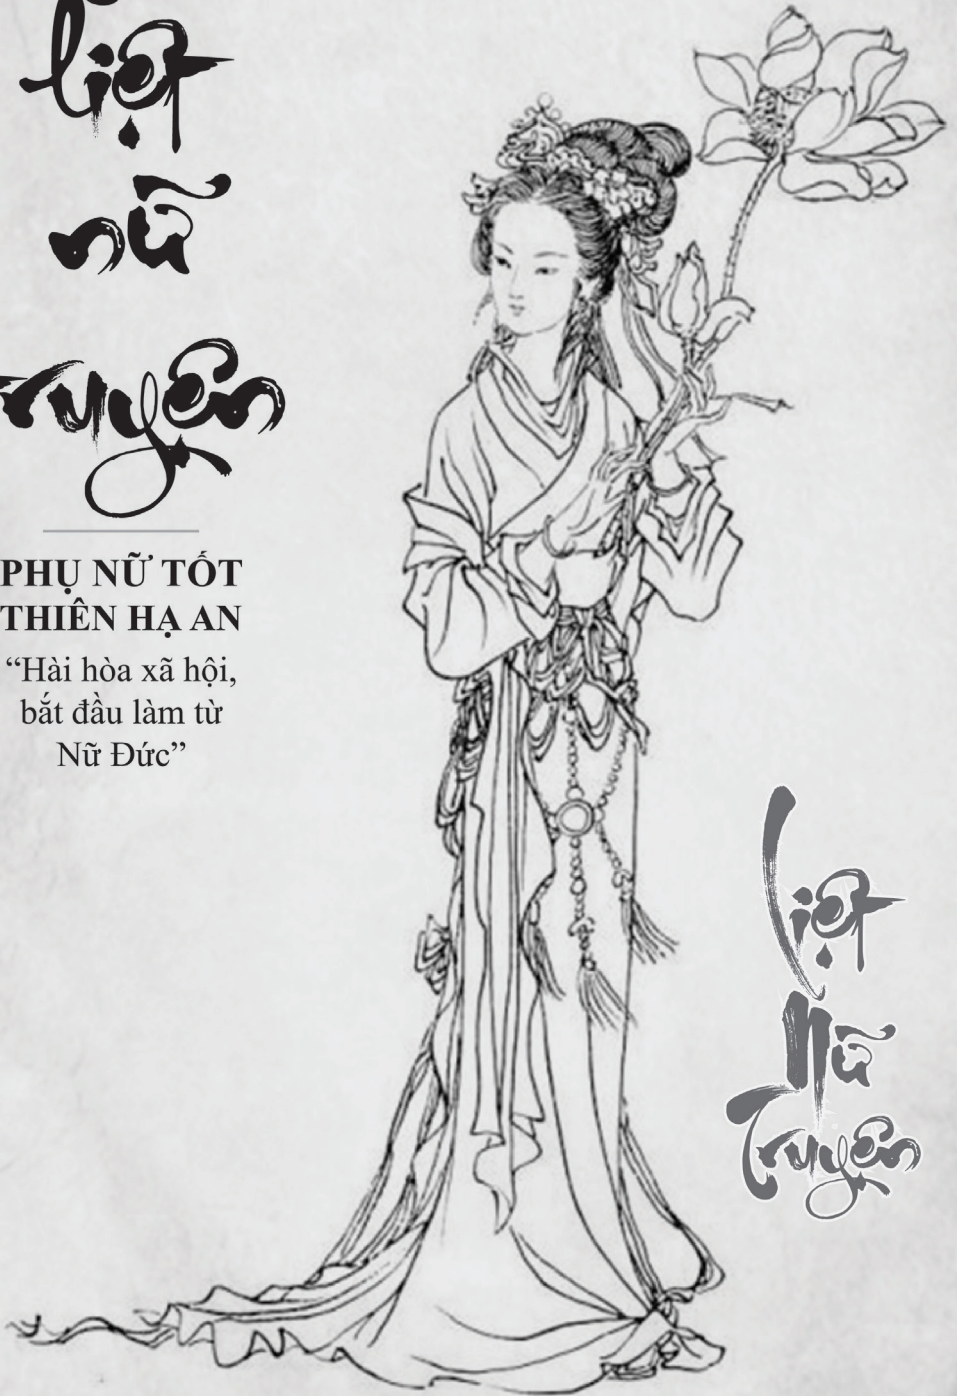 Liệt
nữ
truyện
PHỤ NỮ TỐT
THIÊN HẠ AN
“Hài hòa xã hội,
bắt đầu làm từ
Nữ Đức”
Liệt
Nữ
Truyện